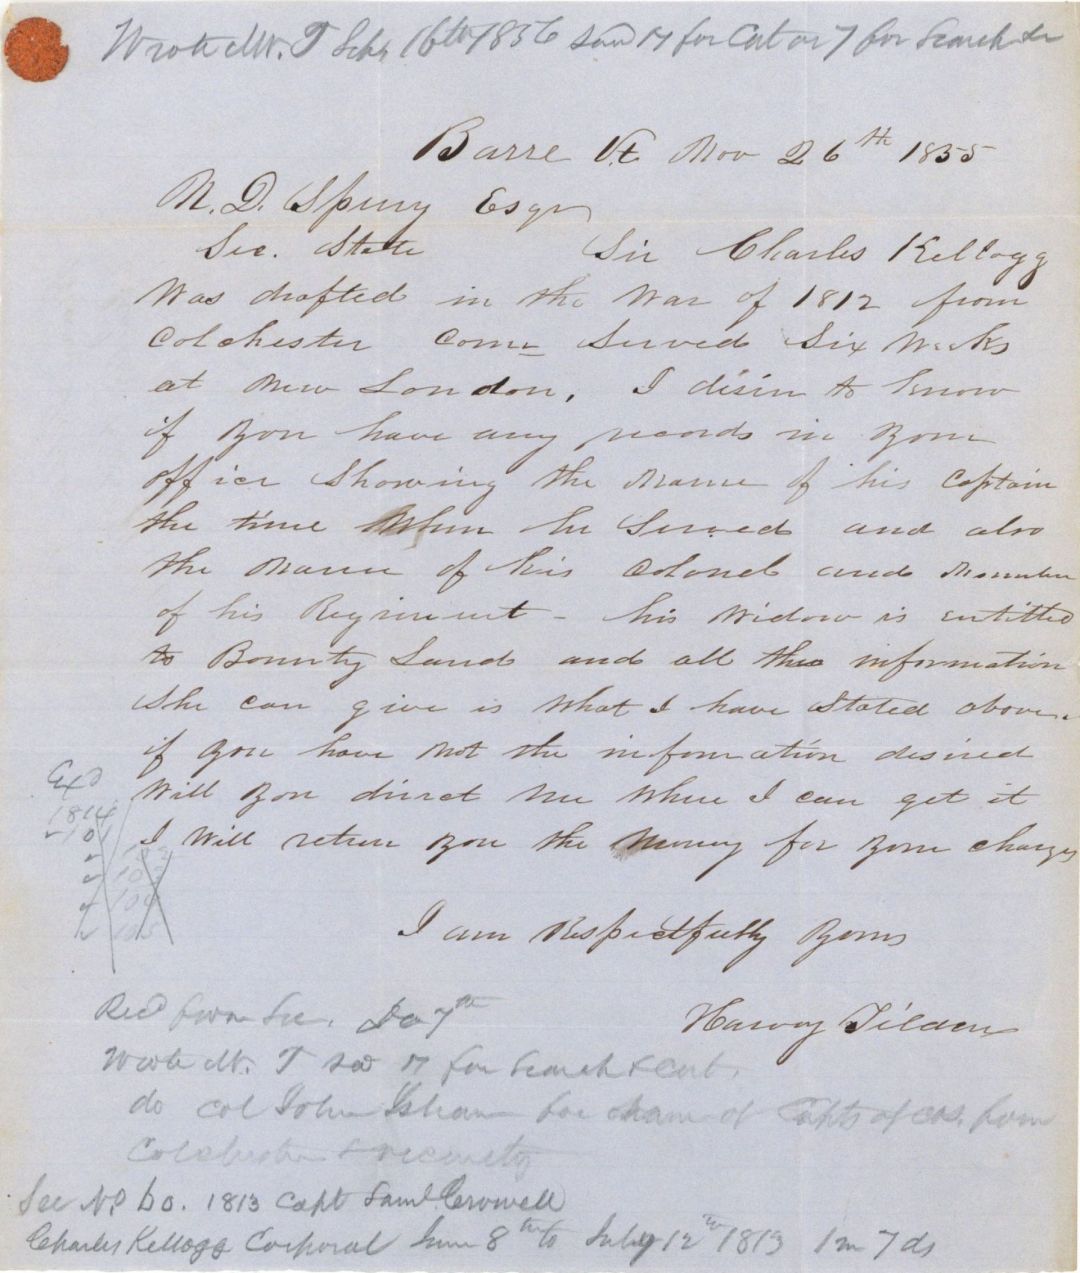 Wrote Mr. T Feby 16th 1856 for Cert or for Search &c
Barre Vt Nov 26th 1855
N. D. Sperry Esqr
Sec. State Sir Charles Kellogg
Was drafted in the War of 1812 from
Colchester Conn Served Six Weeks
at New London, I desire to know
if you have any records in your
office Showing the Name of his Captain
the time When he Served and also
the Name of his Colonel and Number
of his Regiment - his Widow is entitled
to Bounty Land and all the information
She can give is What I have Stated above.
if you have not the information desired
Will you direct me Where I can get it
I Will return you the Money for your charges
I am Respectfully Yours
Harvey Tilden
Exd
1814
101
102
103
104
105
Recd from Sec. 7th
Wrote Mr. T for Search & Cert.
do Col John Isham for Name of Capts of cos. from
Colchester & vicinity
See No. 1813 Capt Saml. Crowell
Charles Kellogg Corporal June 8th to July 12th 1813 1m 7ds